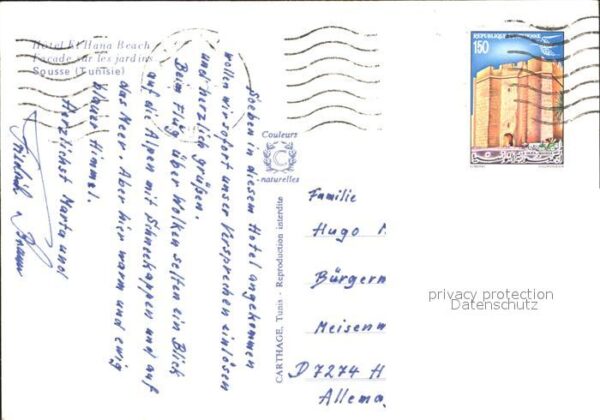 Hotel El Hana Beach
Façade sur les jardins
Sousse (Tunisie)
Soeben in diesem Hotel angekommen
wollen wir sofort unser Versprechen einlösen
und herzlich grüßen.
Beim Flug über Wolken selten ein Blick
auf die Alpen mit Schneekappen und auf
das Meer. Aber hier warm und ewig
blauer Himmel.
Herzlichst Marta und
Couleurs
C
naturelles
CARTHAGE, Tunis - Reproduction interdite
REPUBLIQUE TUNISIENNE
150
Familie
Hugo
Bürgerm
Meisenw
D 7274 H
Allema
privacy protection
Datenschutz